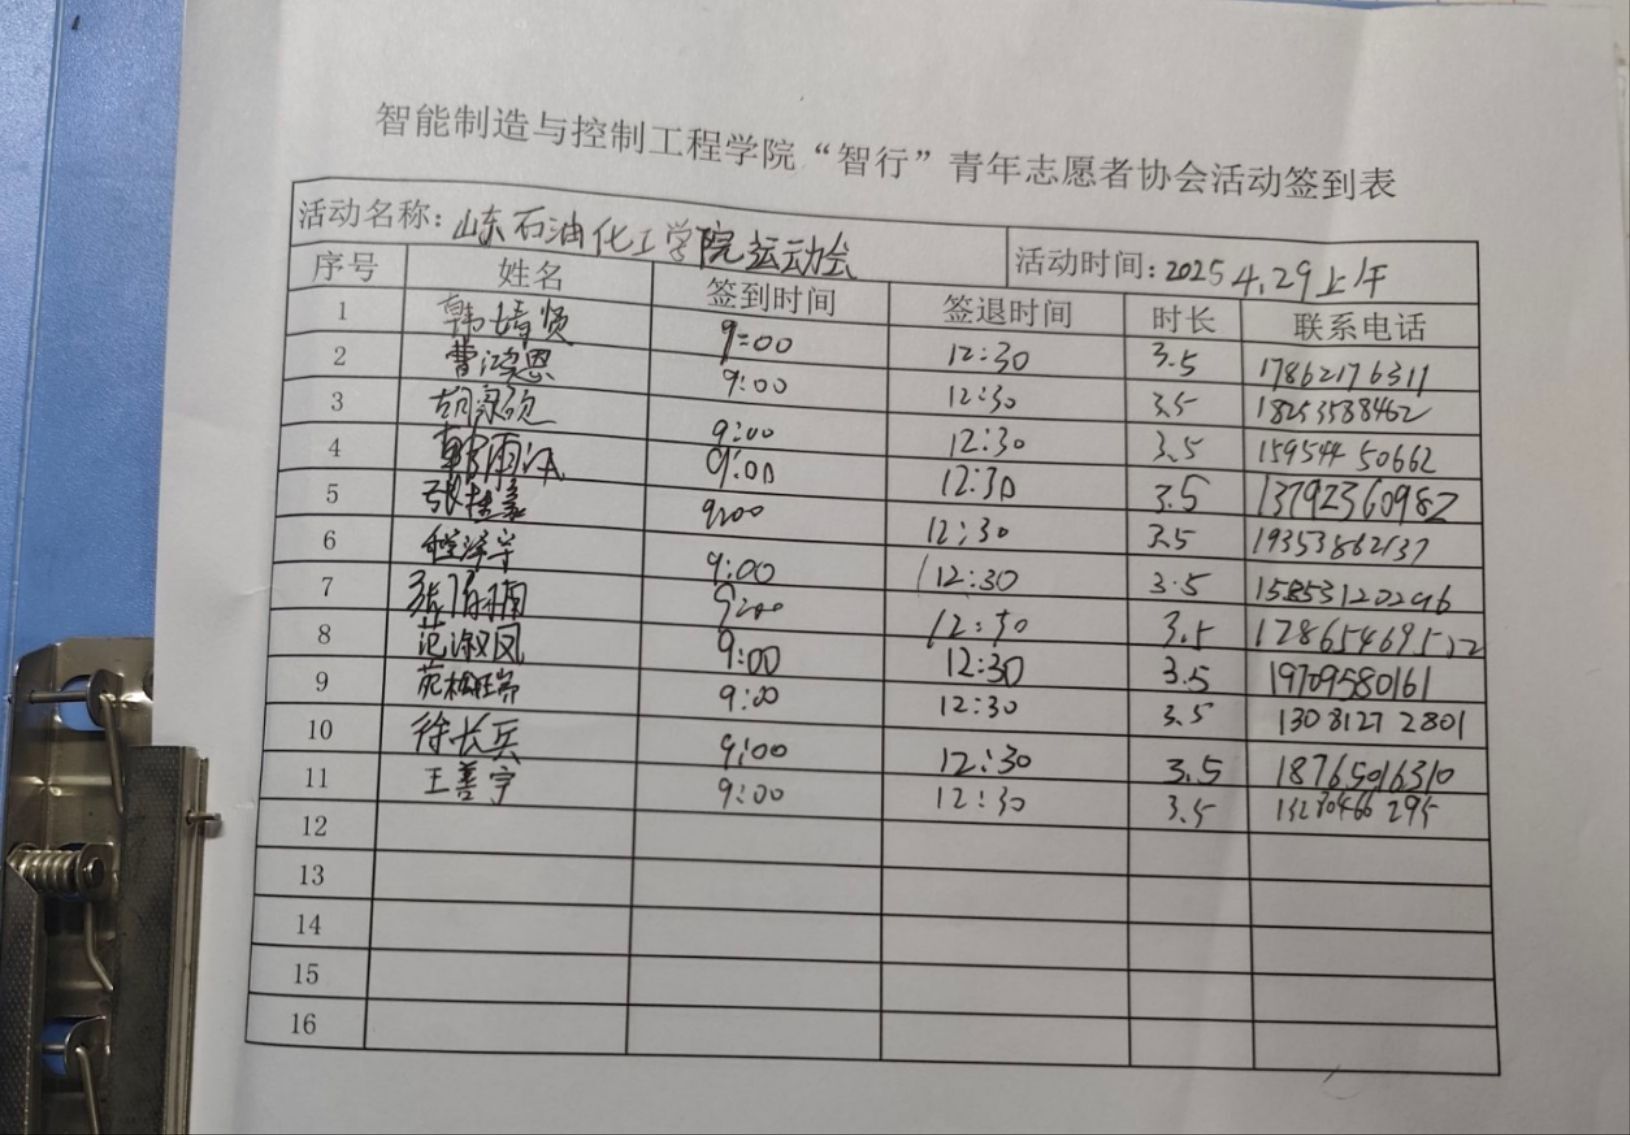 智能制造与控制工程学院“智行”青年志愿者协会活动签到表
活动名称：山东石油化工学院运动会 活动时间：2025 4.29上午
序号 姓名 签到时间 签退时间 时长 联系电话
1 韩靖贤 9:00 12:30 3.5 17862176311
2 曹鸿恩 9:00 12:30 3.5 18253588462
3 9:00 12:30 3.5 15954450662
4 9:00 12:30 3.5 13792360982
5 9:00 12:30 3.5 19353862137
6 程泽宇 9:00 12:30 3.5 15853120296
7 9:00 12:30 3.5
8 范淑凤 9:00 12:30 3.5 19709580161
9 9:00 12:30 3.5 130 8127 2801
10 徐长兵 9:00 12:30 3.5 18765016310
11 王善宇 9:00 12:30 3.5
12
13
14
15
16